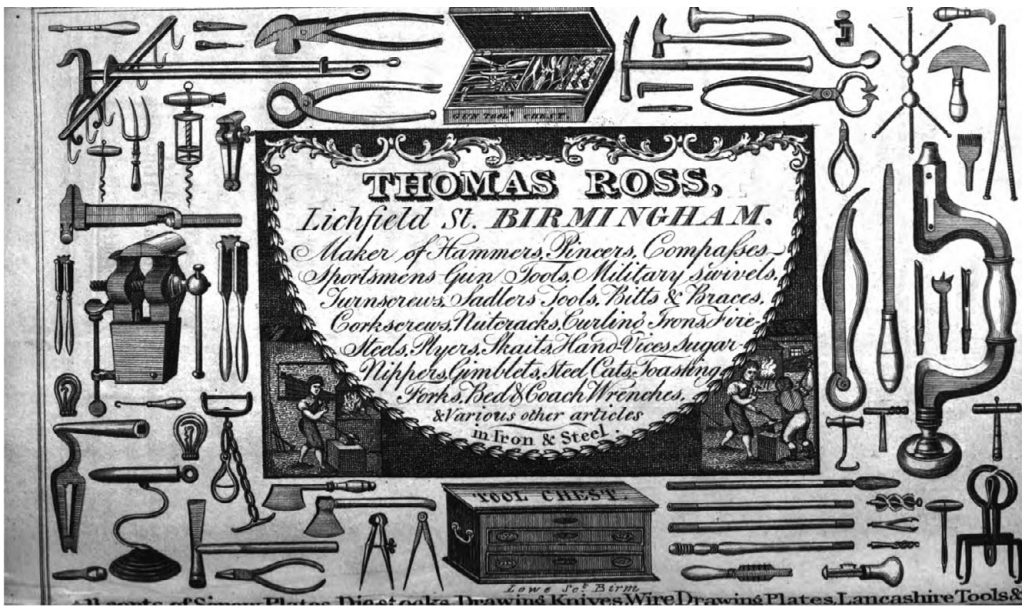 GUN TOOL CHEST.
THOMAS ROSS,
Lichfield St. BIRMINGHAM.
Maker of Hammers, Pincers, Compaſses
Sportsmens Gun Tools, Military Swivels,
Turnscrews, Sadlers Tools, Bitts & Braces,
Corkscrews, Nutcracks, Curling Irons, Fire-
Steels, Plyers, Skaits, Hand-Vices, Sugar-
Nippers, Gimblets, Steel Cats, Toashing
Forks, Bed & Coach Wrenches,
& Various other articles
in Iron & Steel.
TOOL CHEST.
Lowe Scp. Birm
All sorts of Screw Plates, Die-stocks, Drawing Knives, Wire Drawing Plates, Lancashire Tools &